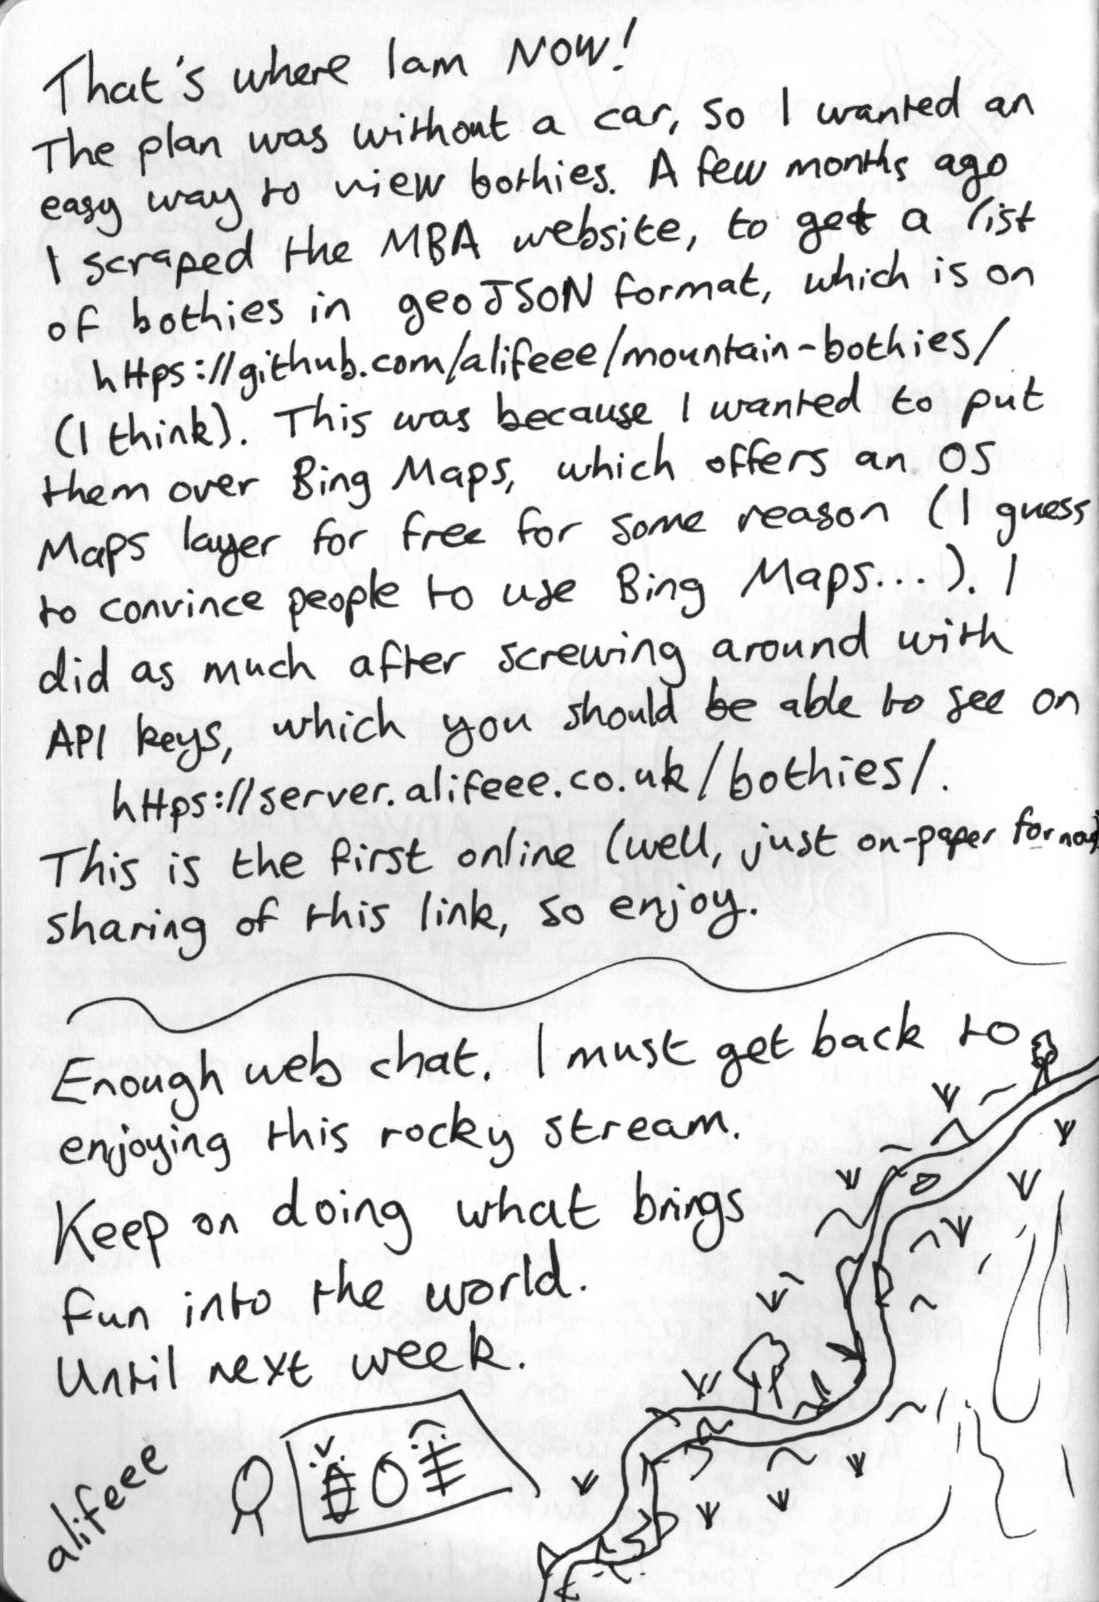 That's where I am NOW!
The plan was without a car, so I wanted an
easy way to view bothies. A few months ago
I scraped the MBA website, to get a list
of bothies in geoJSON format, which is on
https://github.com/alifeee/mountain-bothies/
(I think). This was because I wanted to put
them over Bing Maps, which offers an OS
Maps layer for free for some reason (I guess
to convince people to use Bing Maps...). I
did as much after screwing around with
API keys, which you should be able to see on
https://server.alifeee.co.uk/bothies/.
This is the first online (well, just on-paper for now)
sharing of this link, so enjoy.
Enough web chat. I must get back to
enjoying this rocky stream.
Keep on doing what brings
fun into the world.
Until next week.
alifeee